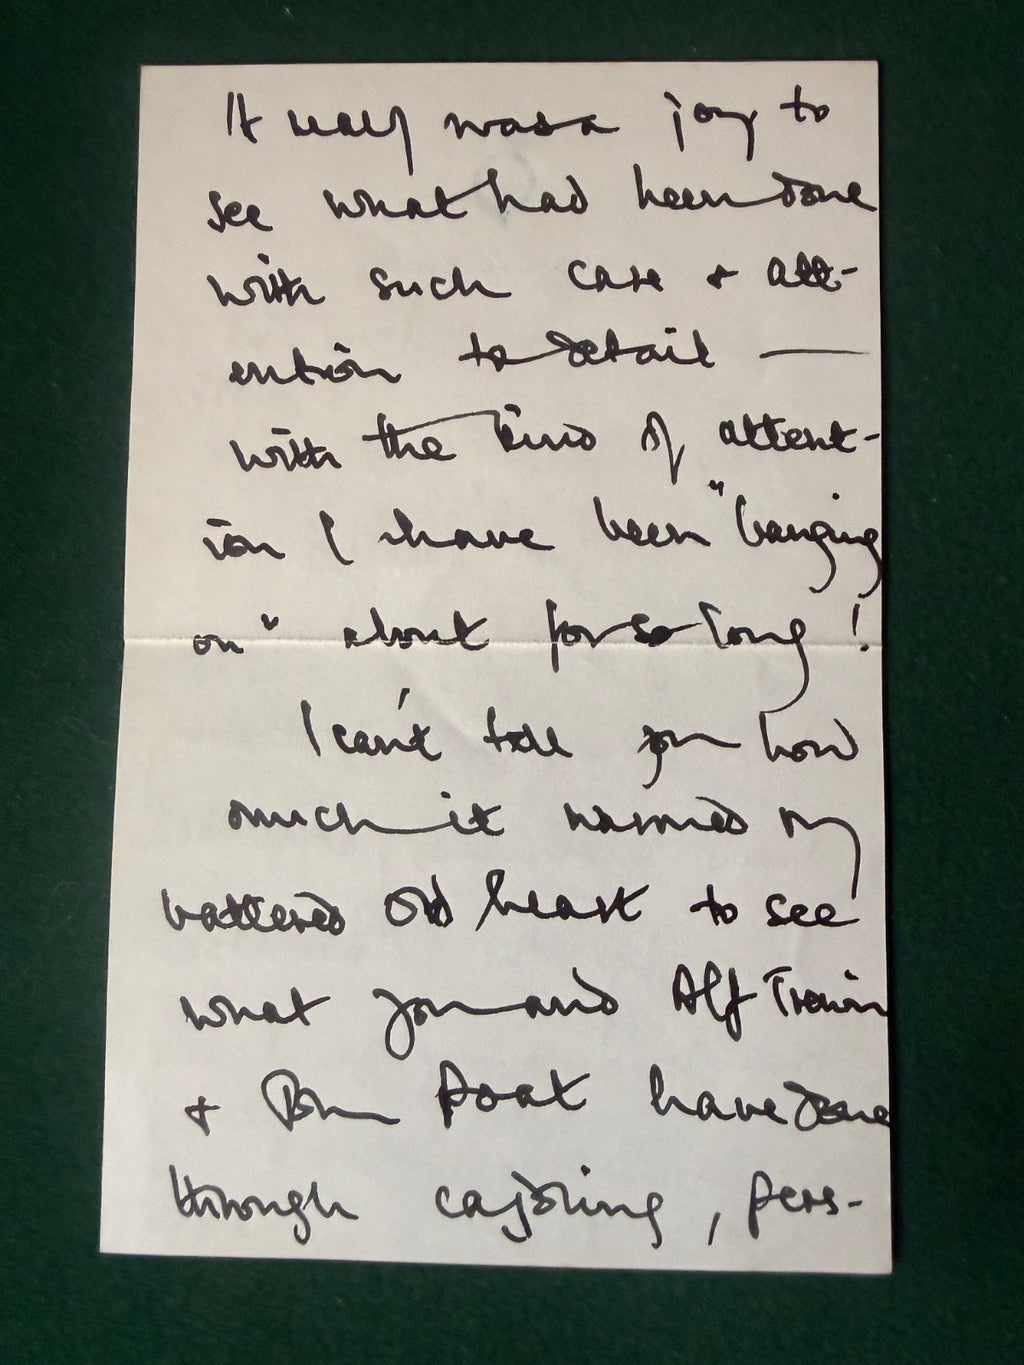 It really was a joy to
see what had been done
with such care + att-
ention to detail —
with the kind of attent-
ion I have been "banging
on" about for so long!
I can't tell you how
much it warmed my
battered old heart to see
what you and Alf
+ have done
through cajoling, pers-